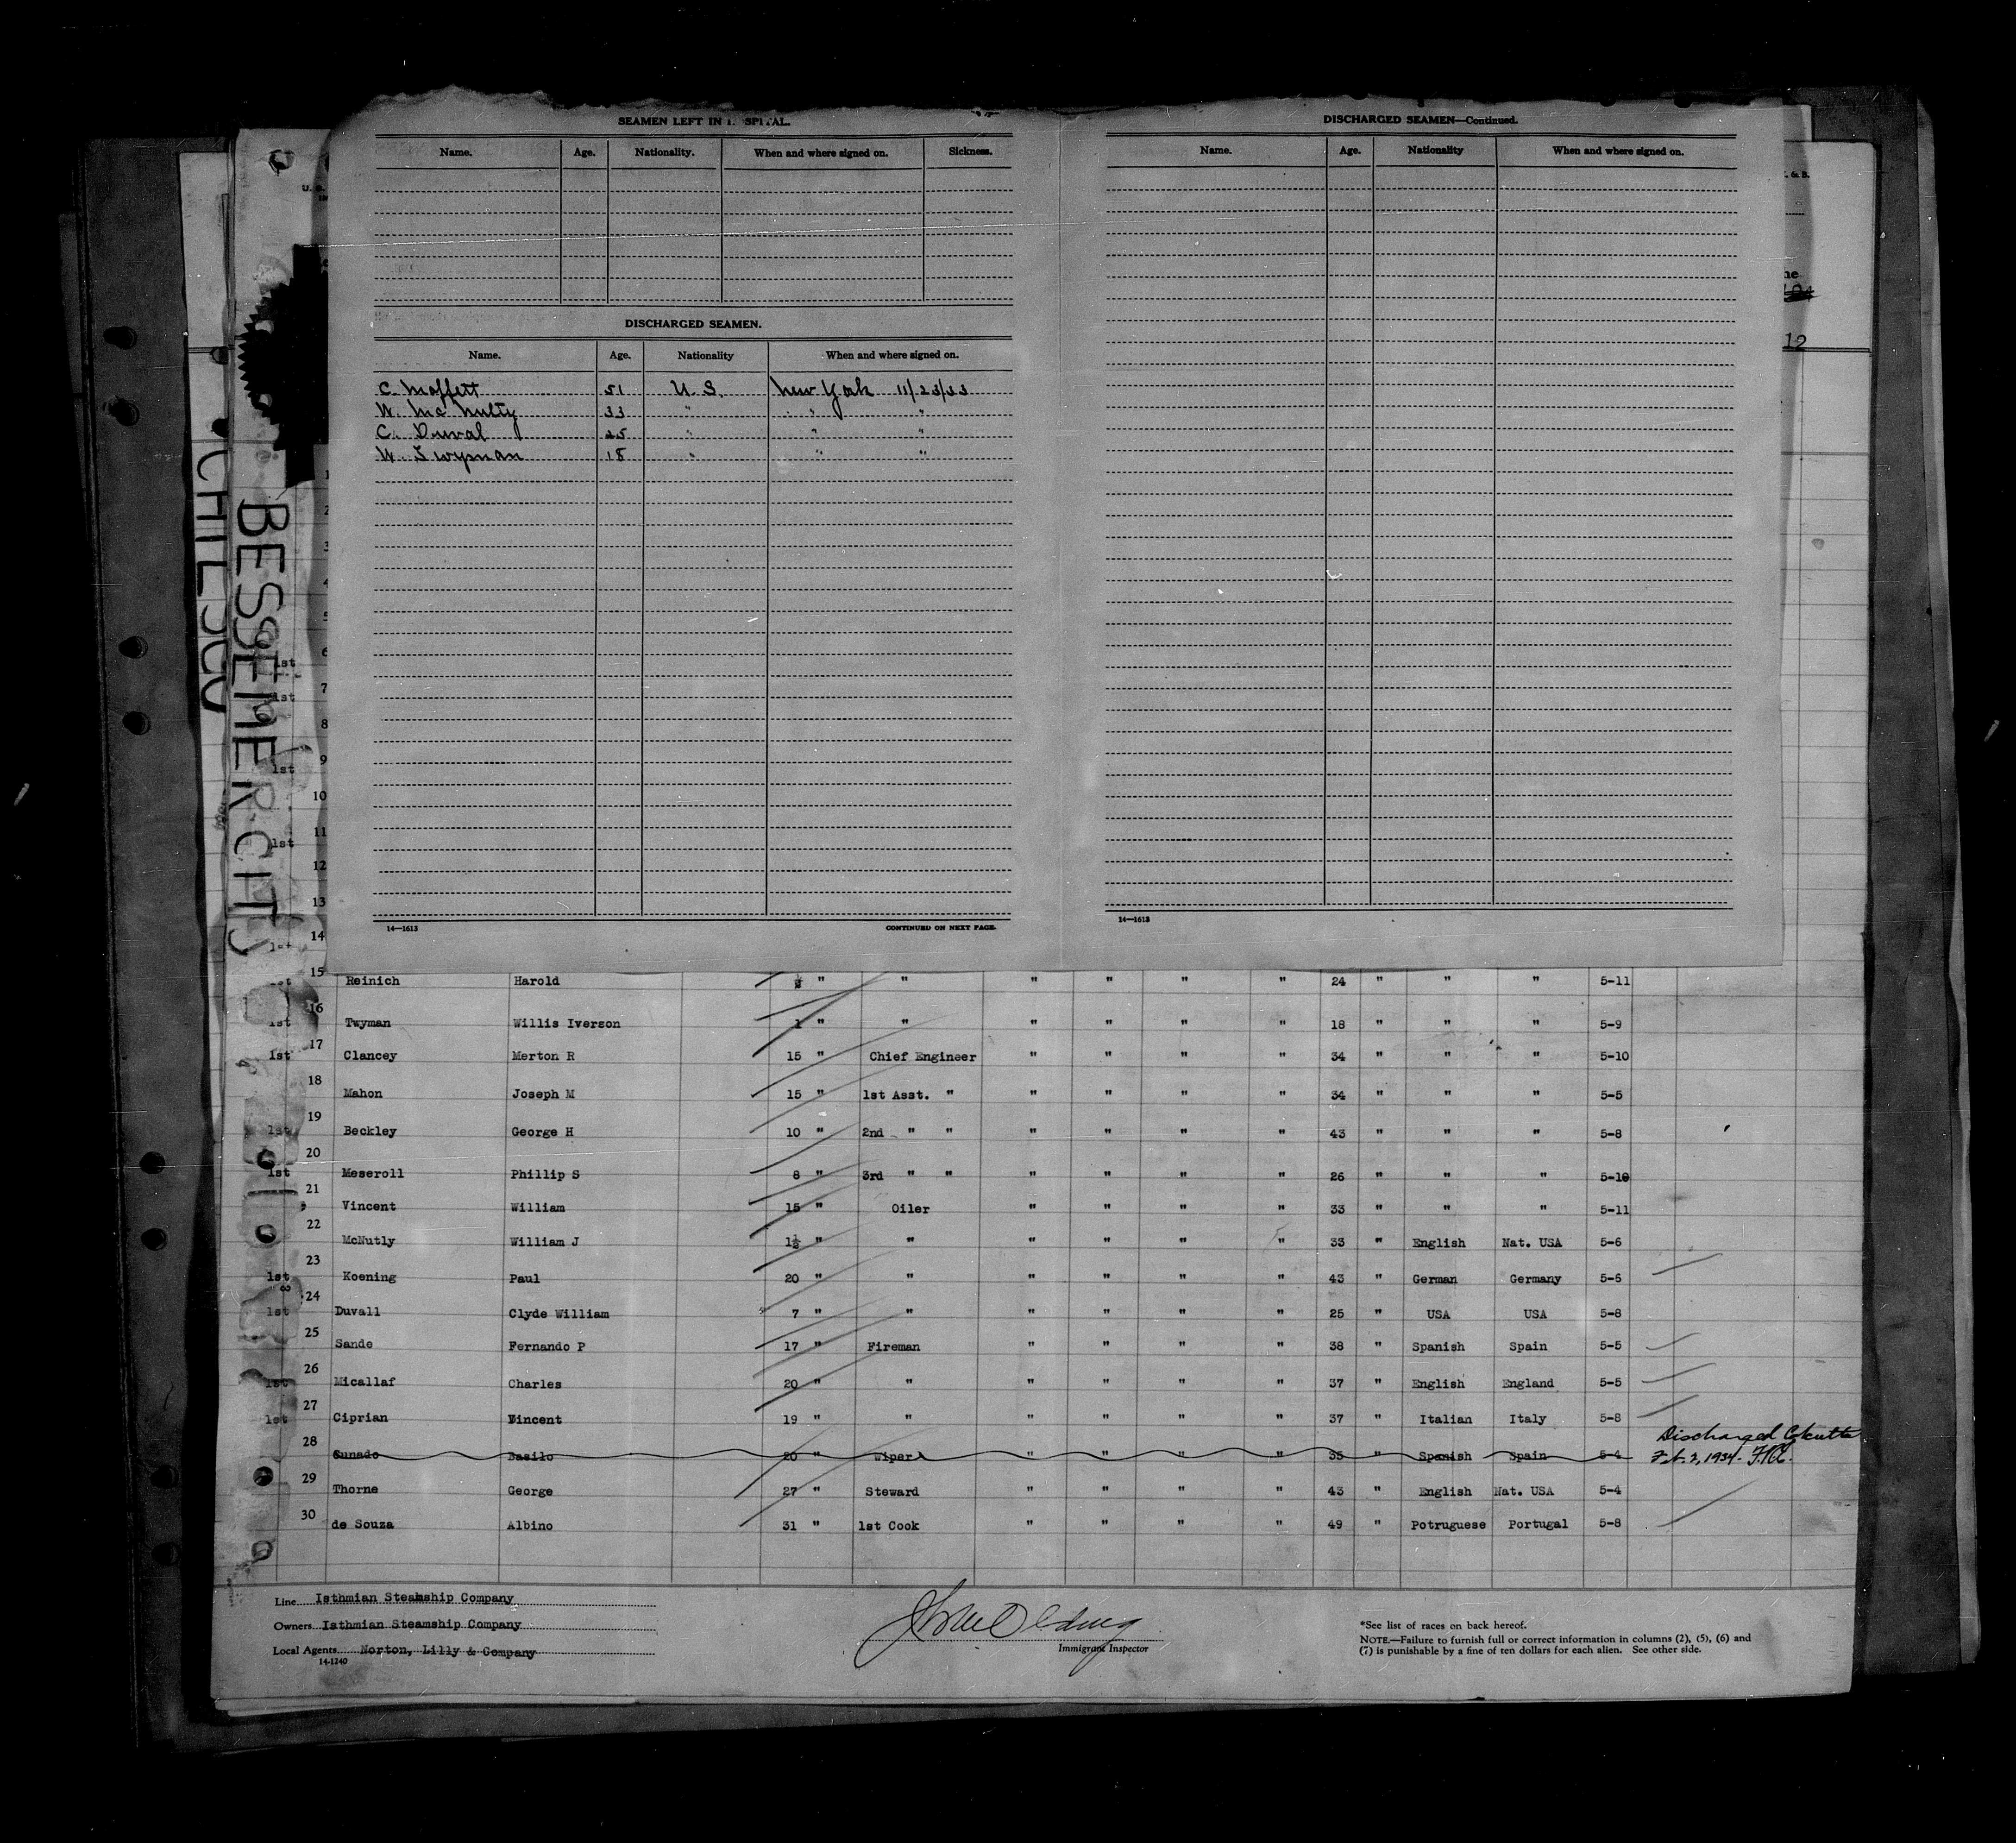 SEAMEN LEFT IN H SPITAL.
Name. Age. Nationality. When and where signed on. Sickness.
DISCHARGED SEAMEN.
Name. Age. Nationality When and where signed on.
C. Moffett 51 U. S. New York 11/23/33
W. Mc Nulty 33 " " "
C. Duval 25 " " "
W. Twyman 18 " " "
14—1613 CONTINUED ON NEXT PAGE.
DISCHARGED SEAMEN—Continued.
Name. Age. Nationality When and where signed on.
14—1613
U. S.
& B.
12
BESSEMER CITY
1
2
3
4
5
1st 6
1st 7
8
1st 9
10
1st 11
12
13
14
15 Reinich Harold ½ " " " " " " 24 " " " 5-11
1st 16 Twyman Willis Iverson 1 " " " " " " 18 " " " 5-9
1st 17 Clancey Merton R 15 " Chief Engineer " " " " 34 " " " 5-10
18 Mahon Joseph M 15 " 1st Asst. " " " " " 34 " " " 5-5
1st 19 Beckley George H 10 " 2nd " " " " " " 43 " " " 5-8
1st 20 Meseroll Phillip S 8 " 3rd " " " " " " 26 " " " 5-10
21 Vincent William 15 " Oiler " " " " 33 " " " 5-11
22 McNutly William J 1½ " " " " " " 33 " English Nat. USA 5-6
1st 23 Koening Paul 20 " " " " " " 43 " German Germany 5-6
1st 24 Duvall Clyde William 7 " " " " " " 25 " USA USA 5-8
25 Sande Fernando P 17 " Fireman " " " " 38 " Spanish Spain 5-5
1st 26 Micallaf Charles 20 " " " " " " 37 " English England 5-5
1st 27 Ciprian Vincent 19 " " " " " " 37 " Italian Italy 5-8
28 Sunado Basilo 20 " Wiper " " " " 35 " Spanish Spain 5-4 Discharged Calcutta
Feb. 2, 1934.
29 Thorne George 27 " Steward " " " " 43 " English Nat. USA 5-4
30 de Souza Albino 31 " 1st Cook " " " " 49 " Potruguese Portugal 5-8
Line Isthmian Steamship Company
Owners Isthmian Steamship Company
Local Agents Norton, Lilly & Company
14-1240
Immigrant Inspector
*See list of races on back hereof.
NOTE.—Failure to furnish full or correct information in columns (2), (5), (6) and
(7) is punishable by a fine of ten dollars for each alien. See other side.